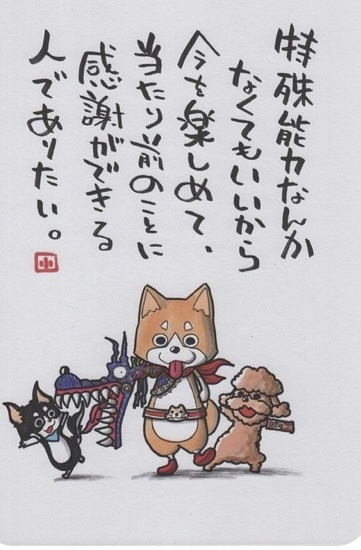 特殊能力なんか
なくてもいいから
今を楽しめて、
当たり前のことに
感謝ができる
人でありたい。